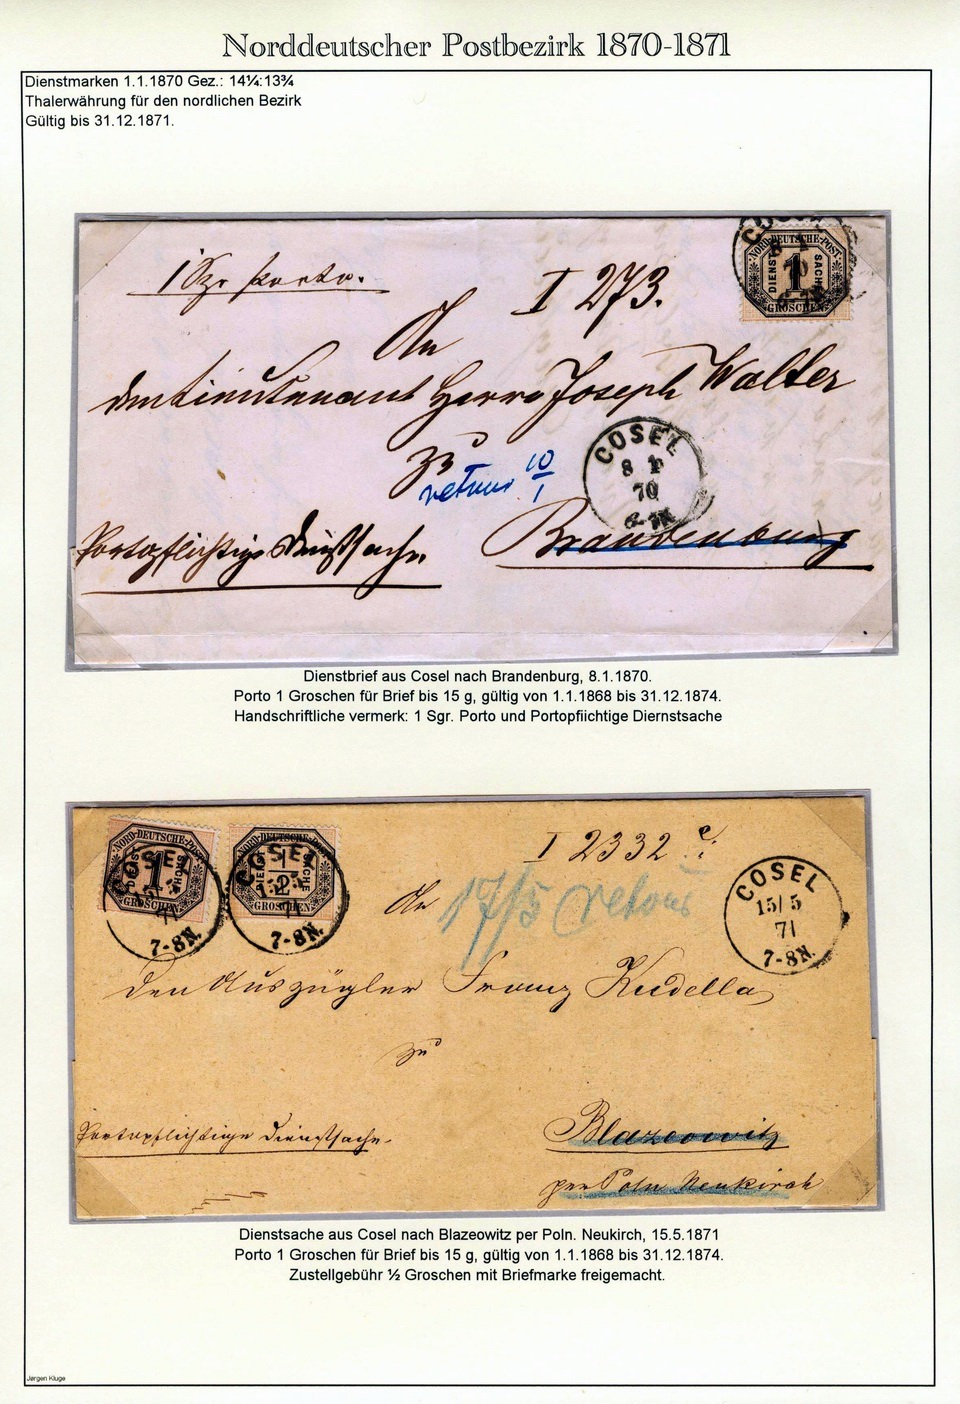 Norddeutscher Postbezirk 1870-1871
Dienstmarken 1.1.1870 Gez.: 14¼:13¾
Thalerwährung für den nordlichen Bezirk
Gültig bis 31.12.1871.
1 Sgr Porto.
I 273.
NORD-DEUTSCHE-POST
DIENST SACHE
1
GROSCHEN
An
den Lieutenant Herrn Joseph Walter
zu
retour 10/1
COSEL
8 1
70
Portopflichtige Dienstsache
Brandenburg
Dienstbrief aus Cosel nach Brandenburg, 8.1.1870.
Porto 1 Groschen für Brief bis 15 g, gültig von 1.1.1868 bis 31.12.1874.
Handschriftliche vermerk: 1 Sgr. Porto und Portopfiichtige Diernstsache
NORD-DEUTSCHE-POST
1
GROSCHEN
COSEL
71
7-8N.
NORD-DEUTSCHE-POST
DIENST SACHE
1/2
GROSCHEN
COSEL
71
7-8N.
I 2332
An
17/5 retour
COSEL
15/5
71
7-8N.
den Auszügler Franz Kudella
zu
Portopflichtige Dienstsache.
Blazeowitz
per Poln Neukirch
Dienstsache aus Cosel nach Blazeowitz per Poln. Neukirch, 15.5.1871
Porto 1 Groschen für Brief bis 15 g, gültig von 1.1.1868 bis 31.12.1874.
Zustellgebühr ½ Groschen mit Briefmarke freigemacht.
Jørgen Kluge